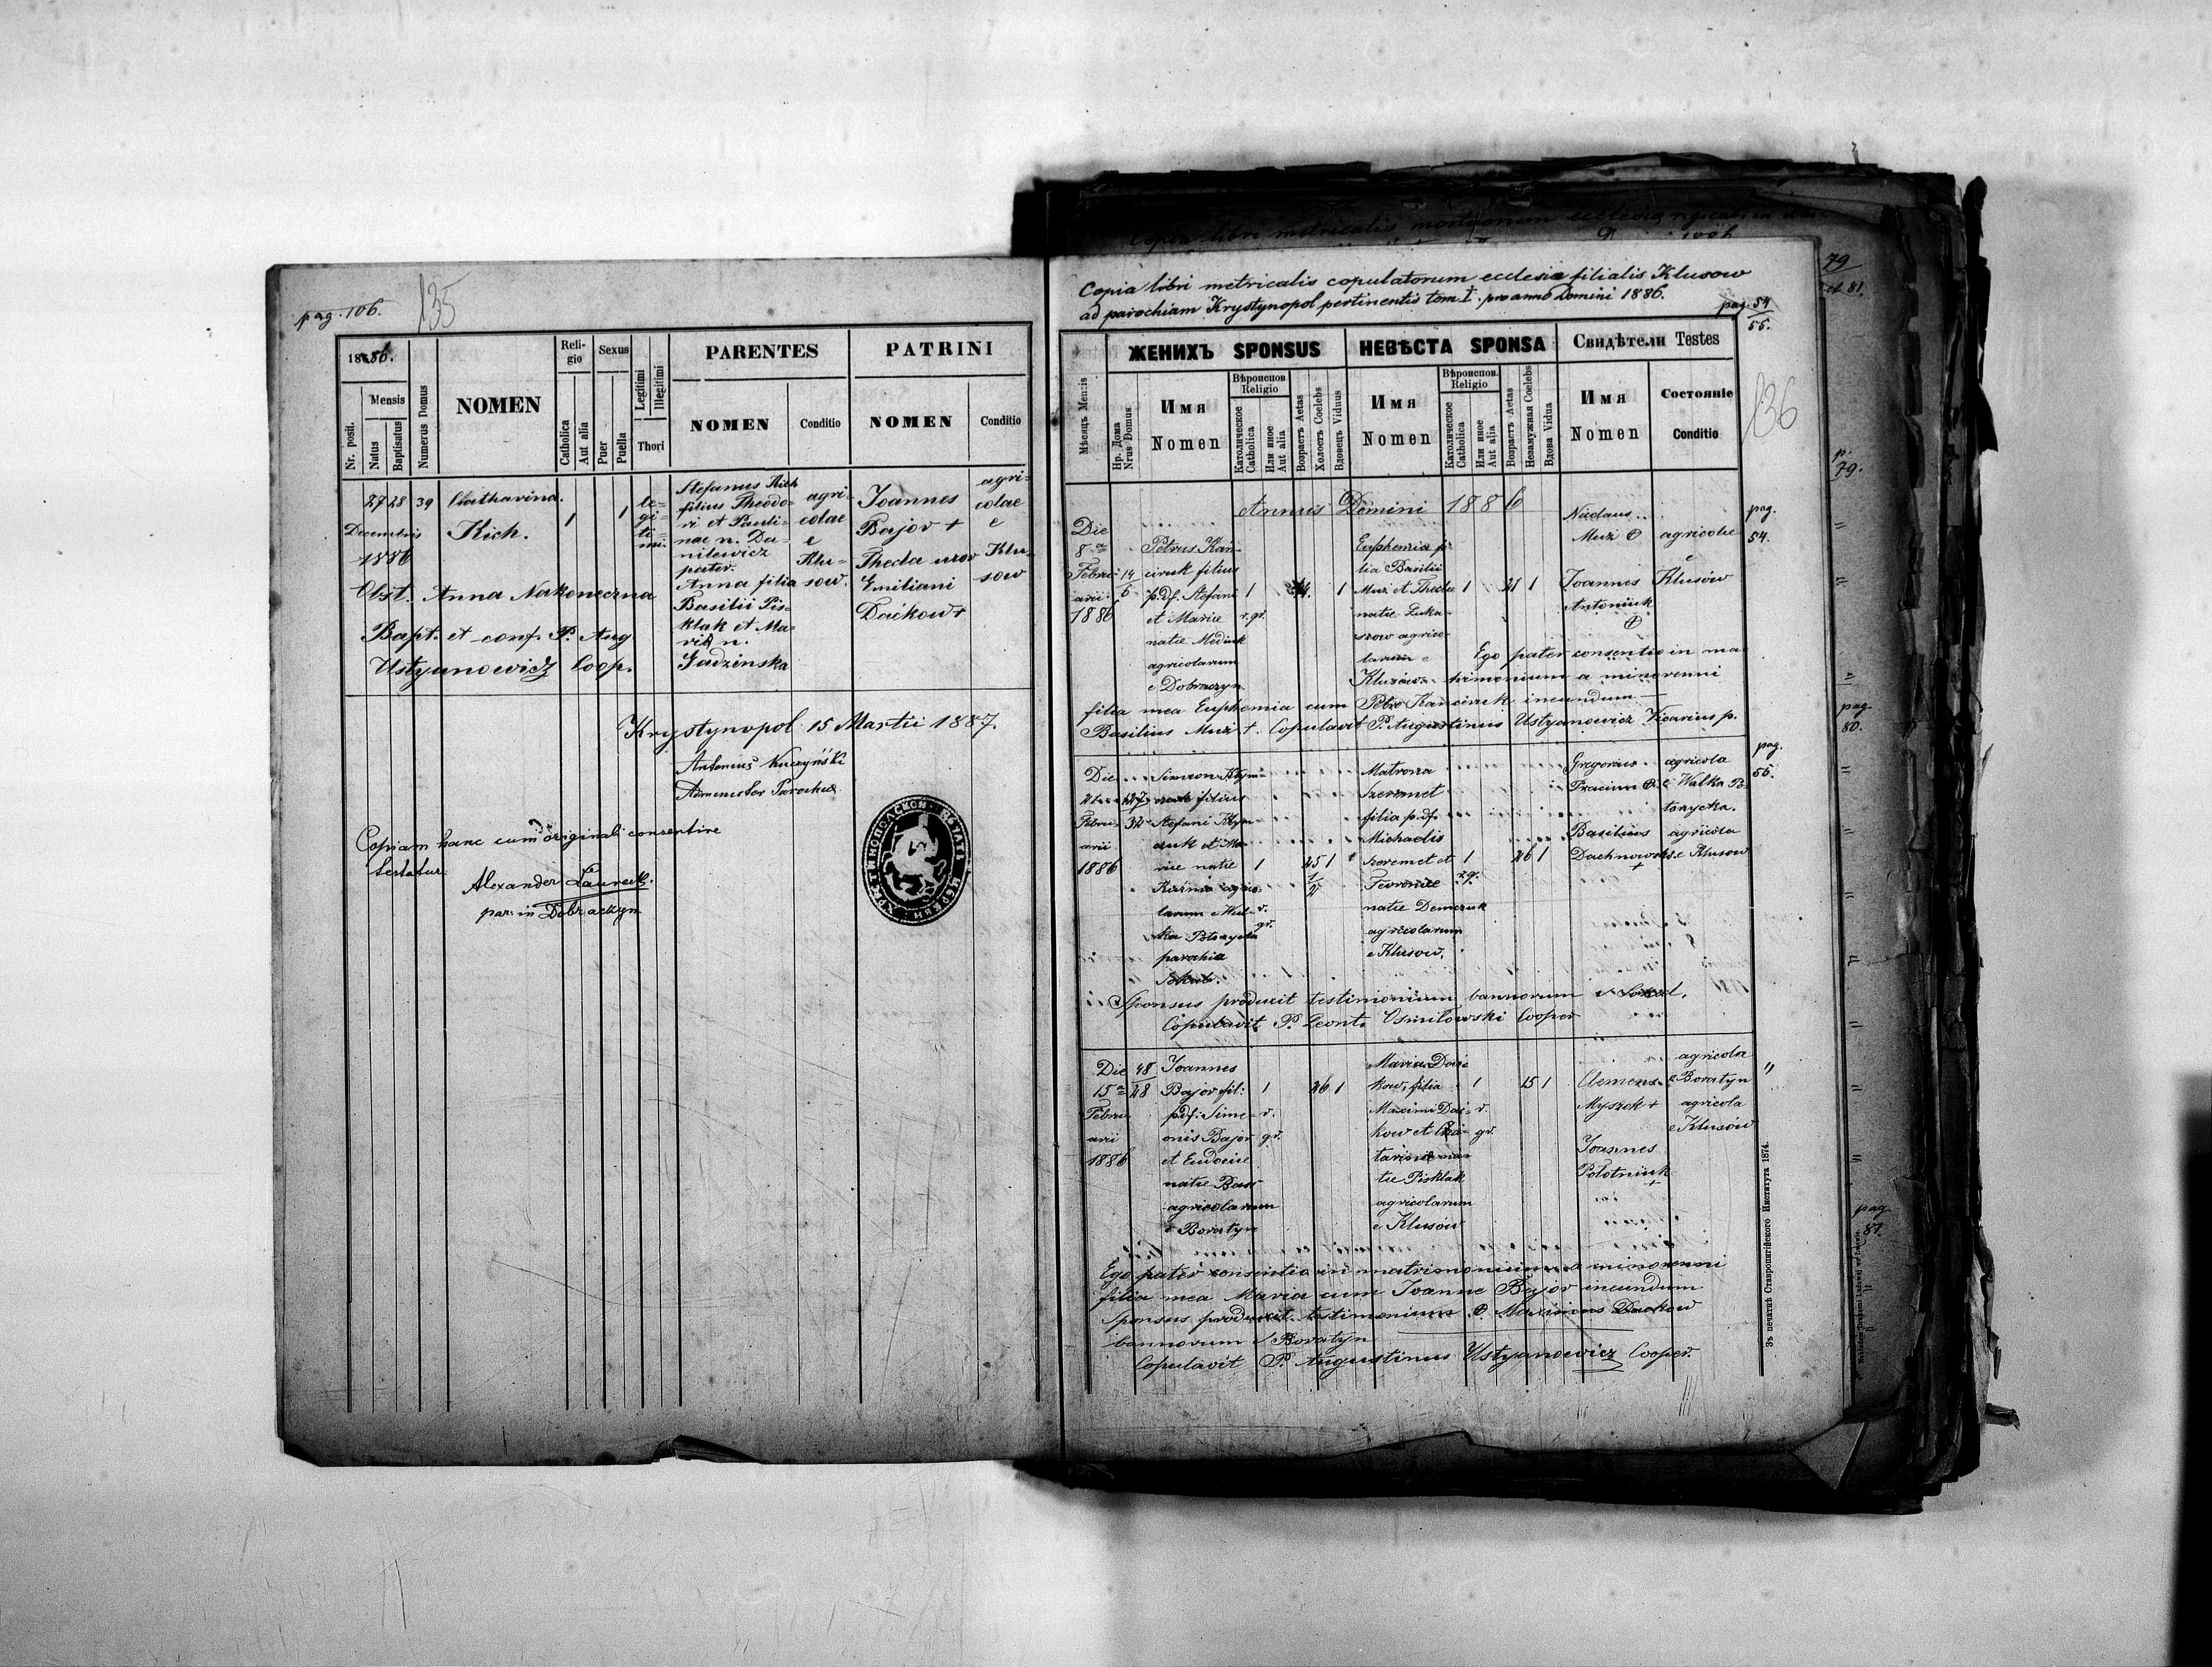 pag. 106.
135
1886.
Nr. posit.
Mensis
Natus
Baptisatus
Numerus Domus
NOMEN
Religio
Catholica
Aut alia
Sexus
Puer
Puella
Legitimi
Illegitimi
Thori
PARENTES
NOMEN
Conditio
PATRINI
NOMEN
Conditio
27 28 39 Catharina
Kich.
Decembris
1886
1
1
le=
gi=
ti=
mi.
Stefanus Kich
filius Theodo=
ri et Pauli=
nae n. Da=
nilewicz
pater.
Anna filia
Basilii Pis=
klak et Ma=
riae n.
Gudzinska
agri=
colae
e
Klu=
sow.
Joannes
Bajor +
Thecla uxor
Emiliani
Daćkow +
agri=
colae
e
Klu=
sow
Obst. Anna Nakoneczna
Bapt. et conf. P. Aug
Ustyanowicz Coop.
Krystynopol 15 Martii 1887.
Antonius Kuczyński
Administer Parochiae
Copiam hanc cum originali consentire
testatur
Alexander
par: in Dobraczyn
Copia libri metricalis copulatorum ecclesiæ filialis Klusow
ad parochiam Krystynopol pertinentis tom. I. pro anno Domini 1886.
pag. 54
55.
136
Мѣсяць Mensis
Нр. Дома
Nrus Domus
ЖЕНИХЪ SPONSUS
Имя
Nomen
Вѣроиспов.
Religio
Католическое
Catholica
Или иное
Aut alia
Возрастъ Aetas
Холостъ Coelebs
Вдовецъ Viduus
НЕВѢСТА SPONSA
Имя
Nomen
Вѣроиспов.
Religio
Католическое
Catholica
Или иное
Aut alia
Возрастъ Aetas
Незамужная Coelebs
Вдова Vidua
Свидѣтели Testes
Имя
Nomen
Состояніе
Conditio
Annus Domini 1886
Die
8 a
Febru=
arii
1886
14
6
Petrus Kan=
ciruk filius
p. df. Stefani
et Mariæ
natæ Mediuk
agricolarum
e Dobraczyn
1
r. gr.
1
Euphemia fi=
lia Basilii
Muż et Theclæ
natæ Luka=
szow agrico=
larum e
Klusów
1
21 1
Nicolaus
Muż
Joannes
Antoniuk
agricolæ
e
Klusów
pag.
54.
Ego pater consentio in ma=
trimonium a minorenni
filia mea Euphemia cum Petro Kanciruk ineundum
Basilius Muż +. Copulavit P. Augustinus Ustyanowicz Vicarius p.
Die
Febru=
arii
1886
127
32
Simeon Klym=
czuk filius
Stefani Klym=
czuk et Ma=
riæ natæ
agrico=
larum e Wul=
ka Poturzycka
parochiæ
Sokal.
1
r.
gr.
25 1
1
2
Matrona
Szeremet
filia p. df.
Michaelis
Szeremet et
Fevroniæ
natæ Demczuk
agricolarum
e Klusow.
1
r. g.
26 1
Gregorius
Basilius
Dachnowski
+
agricola
e Wulka Po=
turzycka.
agricola
e Klusow
pag.
55.
Sponsus produxit testimonium bannorum e Sokal.
Copulavit P. Leont. Osmilowski Cooper
Die
15 a
Febru=
arii
1886
48
28
Joannes
Bajor fil:
p. df: Sime=
onis Bajor
et Eudociæ
natæ Bass
agricolarum
e Boratyn
1
r.
gr.
26 1
Maria Dać=
kow, filia
Maximi Dać=
kow et Cha=
ritinæ na=
tæ Pisklak
agricolarum
e Klusów
1
r.
gr.
15 1
Clemens
Myszok +
Joannes
Połotniuk
+
agricola
e Boratyn
agricola
e Klusów
"
Ego pater consentio in matrimonium a minorenni
filia mea Maria cum Joanne Bajor ineundum
Sponsus produxit testimonium Maximus Dackow
bannorum e Boratyn
Copulavit P. Augustinus Ustyanowicz Cooper.
Зъ печатнѣ Ставропигійского Института 1874.
79
et 81.
p.
79.
pag.
80.
pag.
81.